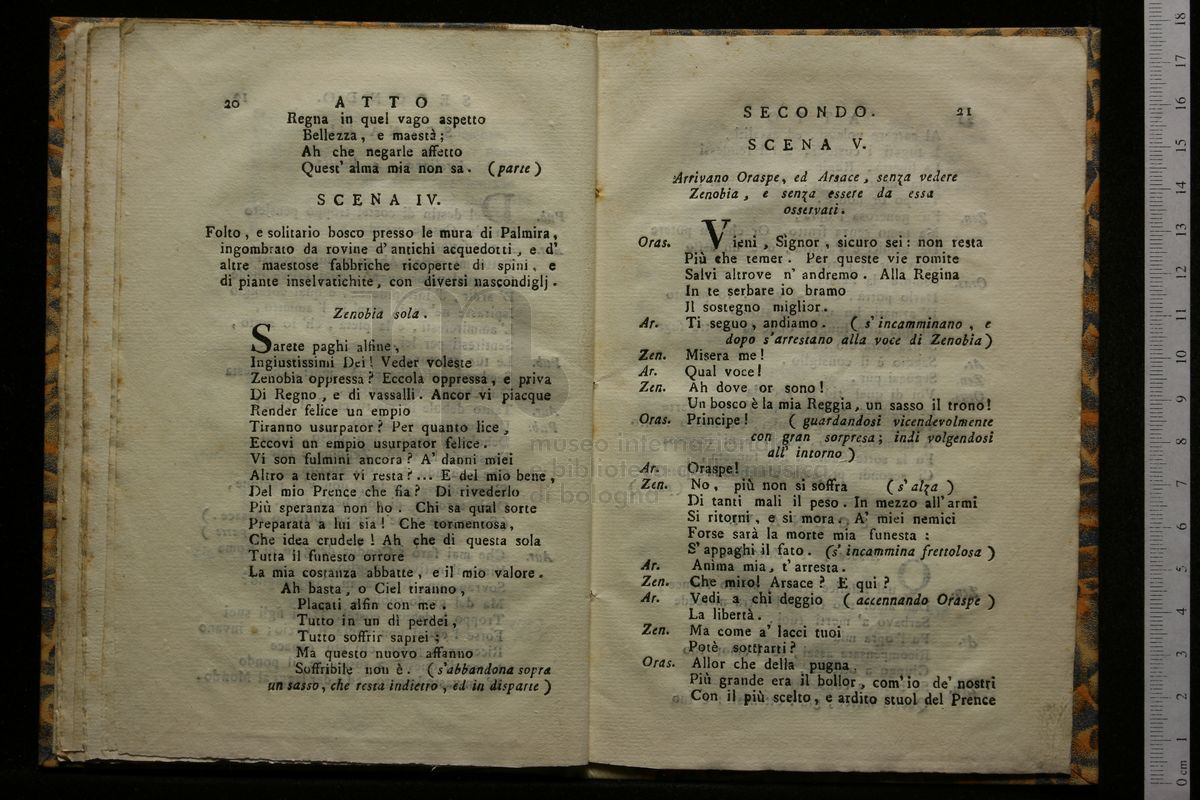 20 ATTO
Regna in quel vago aspetto
Bellezza, e maestà;
Ah che negarle affetto
Quest' alma mia non sa. (parte)
SCENA IV.
Folto, e solitario bosco presso le mura di Palmira,
ingombrato da rovine d'antichi acquedotti, e d'
altre maestose fabbriche ricoperte di spini, e
di piante inselvatichite, con diversi nascondiglj.
Zenobia sola.
Sarete paghi alfine,
Ingiustissimi Dei! Veder voleste
Zenobia oppressa? Eccola oppressa, e priva
Di Regno, e di vassalli. Ancor vi piacque
Render felice un empio
Tiranno usurpator? Per quanto lice,
Eccovi un empio usurpator felice.
Vi son fulmini ancora? A' danni miei
Altro a tentar vi resta?... E del mio bene,
Del mio Prence che fia? Di rivederlo
Più speranza non ho. Chi sa qual sorte
Preparata a lui sia! Che tormentosa,
Che idea crudele! Ah che di questa sola
Tutta il funesto orrore
La mia costanza abbatte, e il mio valore.
Ah basta, o Ciel tiranno,
Placati alfin con me.
Tutto in un dì perdei,
Tutto soffrir saprei;
Ma questo nuovo affanno
Soffribile non è. (s'abbandona sopra
un sasso, che resta indietro, ed in disparte)
SECONDO. 21
SCENA V.
Arrivano Oraspe, ed Arsace, senza vedere
Zenobia, e senza essere da essa
osservati.
Oras. Vieni, Signor, sicuro sei: non resta
Più che temer. Per queste vie romite
Salvi altrove n' andremo. Alla Regina
In te serbare io bramo
Il sostegno miglior.
Ar. Ti seguo, andiamo. (s'incamminano, e
dopo s'arrestano alla voce di Zenobia)
Zen. Misera me!
Ar. Qual voce!
Zen. Ah dove or sono!
Un bosco è la mia Reggia, un sasso il trono!
Oras. Principe! (guardandosi vicendevolmente
con gran sorpresa; indi volgendosi
all' intorno)
Ar. Oraspe!
Zen. No, più non si soffra (s'alza)
Di tanti mali il peso. In mezzo all'armi
Si ritorni, e si mora. A' miei nemici
Forse sarà la morte mia funesta:
S' appaghi il fato. (s'incammina frettolosa)
Ar. Anima mia, t'arresta.
Zen. Che miro! Arsace? E qui?
Ar. Vedi a chi deggio (accennando Oraspe)
La libertà.
Zen. Ma come a' lacci tuoi
Potè sottrarti?
Oras. Allor che della pugna
Più grande era il bollor, com'io de' nostri
Con il più scelto, e ardito stuol del Prence
museo internazionale
e biblioteca della musica
di bologna
0 cm 1 2 3 4 5 6 7 8 9 10 11 12 13 14 15 16 17 18